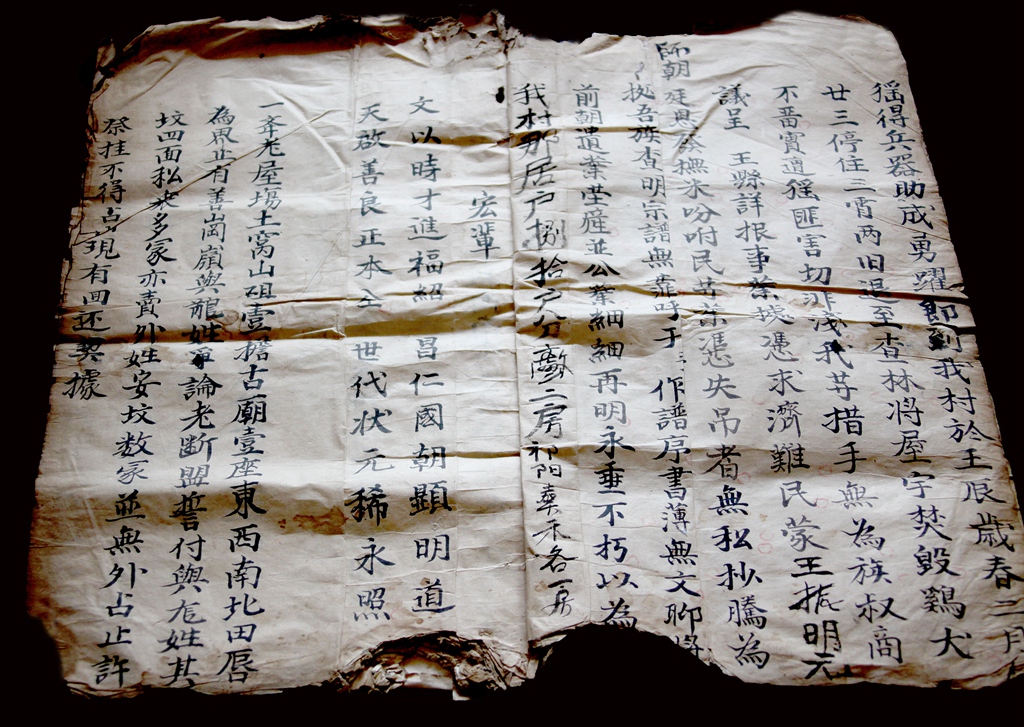 猺得兵器助成勇躍即到我村於壬辰歲春二月
廿三停住三宵两旧退至杳林将屋宇焚毀鷄犬
不啬實遭猺匪害切非淺我䓁措手無為族叔商
議呈 王縣詳报事業㙍憑求濟難民蒙王振明示
廷恩 撫来吩咐民䓁業憑失吊者無私抄騰為
師朝
拠吾族查明宗譜無靠呼于 作譜序書薄無文聊将
前朝遺業莹癍並公業細細再明永垂不朽以為
我村那居戸捌拾戸分 二房 各一房
宏輩
文以時才進福紹昌仁國朝顯明道
天啟善良正本全世代状元稀永照
一奔老屋塲土窩山 壹擔古廟壹座東西南北田唇
為界並有善崗嶺與龍姓 論老斷盟誓付與龙姓其
坟四面松 多家亦賣外姓安坟数家並無外占止許
祭挂不得占 現有回还契據